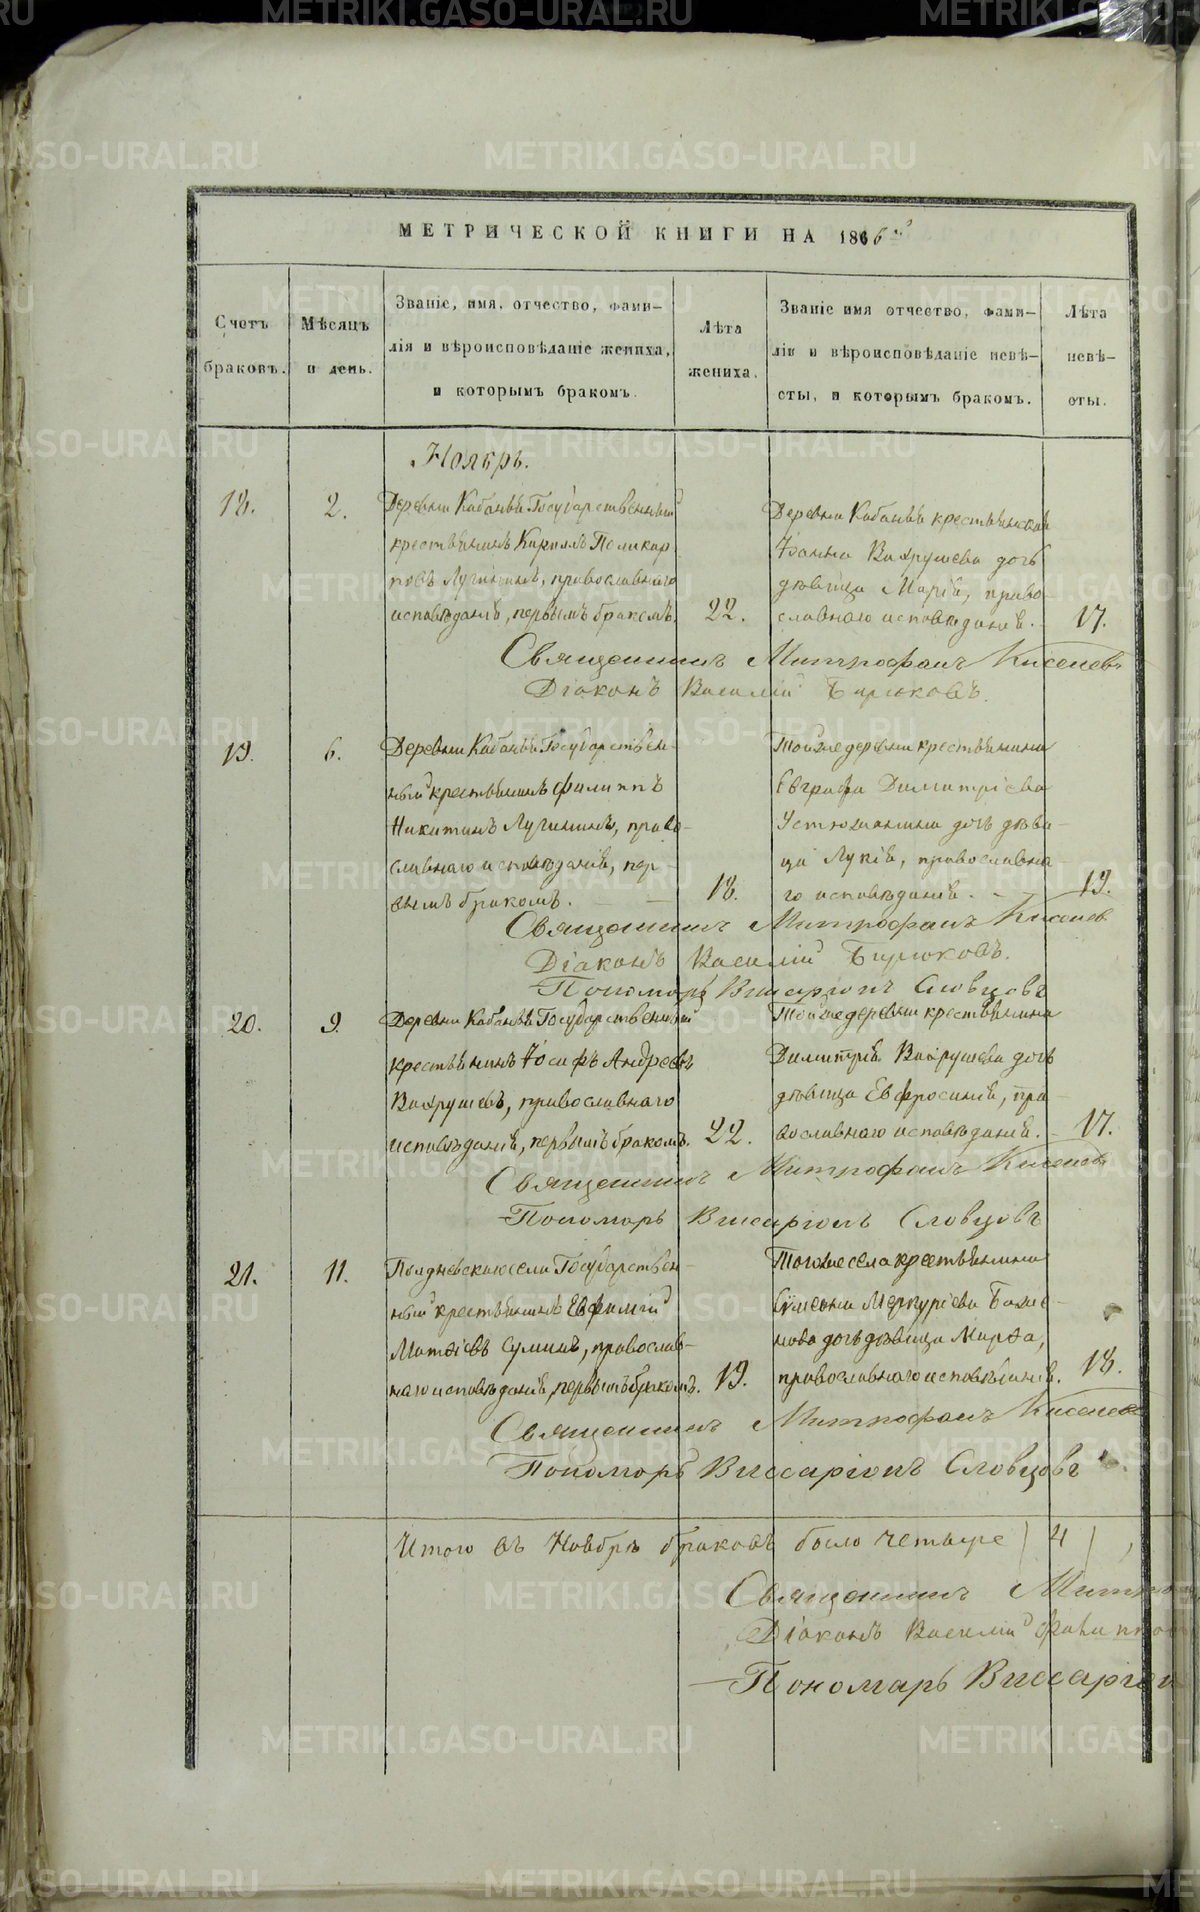 МЕТРИЧЕСКОЙ КНИГИ НА 1866
Счетъ браковъ.
Мѣсяцъ и день.
Званіе, имя, отчество, фами-
лія и вѣроисповѣданіе жениха,
и которымъ бракомъ.
Лѣта жениха.
Званіе имя отчество, фами-
лія и вѣроисповѣданіе невѣ-
сты, и которымъ бракомъ.
Лѣта невѣ-
сты.
Ноябрь.
18.
2.
Деревни Кабаньи Государственный
крестьянинъ Кириллъ Поликар
повъ Лугининъ, православнаго
исповѣданія, первымъ бракомъ.
22.
Деревни Кабаньи крестьянина
Іоанна Вахрушева дочь
дѣвица Марія, право-
славнаго исповѣданія.
17.
Священникъ Митрофанъ Киселевъ
Діаконъ Василій Бирюковъ.
19.
6.
Деревни Кабаньи Государствен-
ный крестьянинъ Филиппъ
Никитинъ Лугининъ, право-
славнаго исповѣданія, пер-
вымъ бракомъ.
18.
Тойже деревни крестьянина
Евграфа Димитріева
Устюжанина дочь дѣви-
ца Лукія, православна-
го исповѣданія.
19.
Священникъ Митрофанъ Киселев
Діаконъ Василій Бирюковъ.
Пономарь Висаріонъ Словцовъ
20.
9.
Деревни Кабаньи Государственный
крестьянинъ Іосифъ Андреевъ
Вахрушевъ, православнаго
исповѣданія, первымъ бракомъ.
22.
Тойже деревни крестьянина
Димитрія Вахрушева дочь
дѣвица Евфросинія, пра-
вославнаго исповѣданія.
17.
Священникъ Митрофанъ Киселевъ
Пономарь Висаріонъ Словцовъ
21.
11.
Полдневскаго села Государствен-
ный крестьянинъ Евфимій
Матѳіевъ Суминъ, православ-
наго исповѣданія, первымъ бракомъ.
19.
Тогоже села крестьянина
Сумеона Меркуріева Баже-
нова дочь дѣвица Марѳа,
православнаго исповѣданія.
18.
Священникъ Митрофанъ Киселевъ
Пономарь Виссаріонъ Словцовъ
Итого въ Ноябрѣ браковъ было четыре (4),
Священникъ
Діаконъ Василій
Пономарь Виссаріон
METRIKI.GASO-URAL.RU